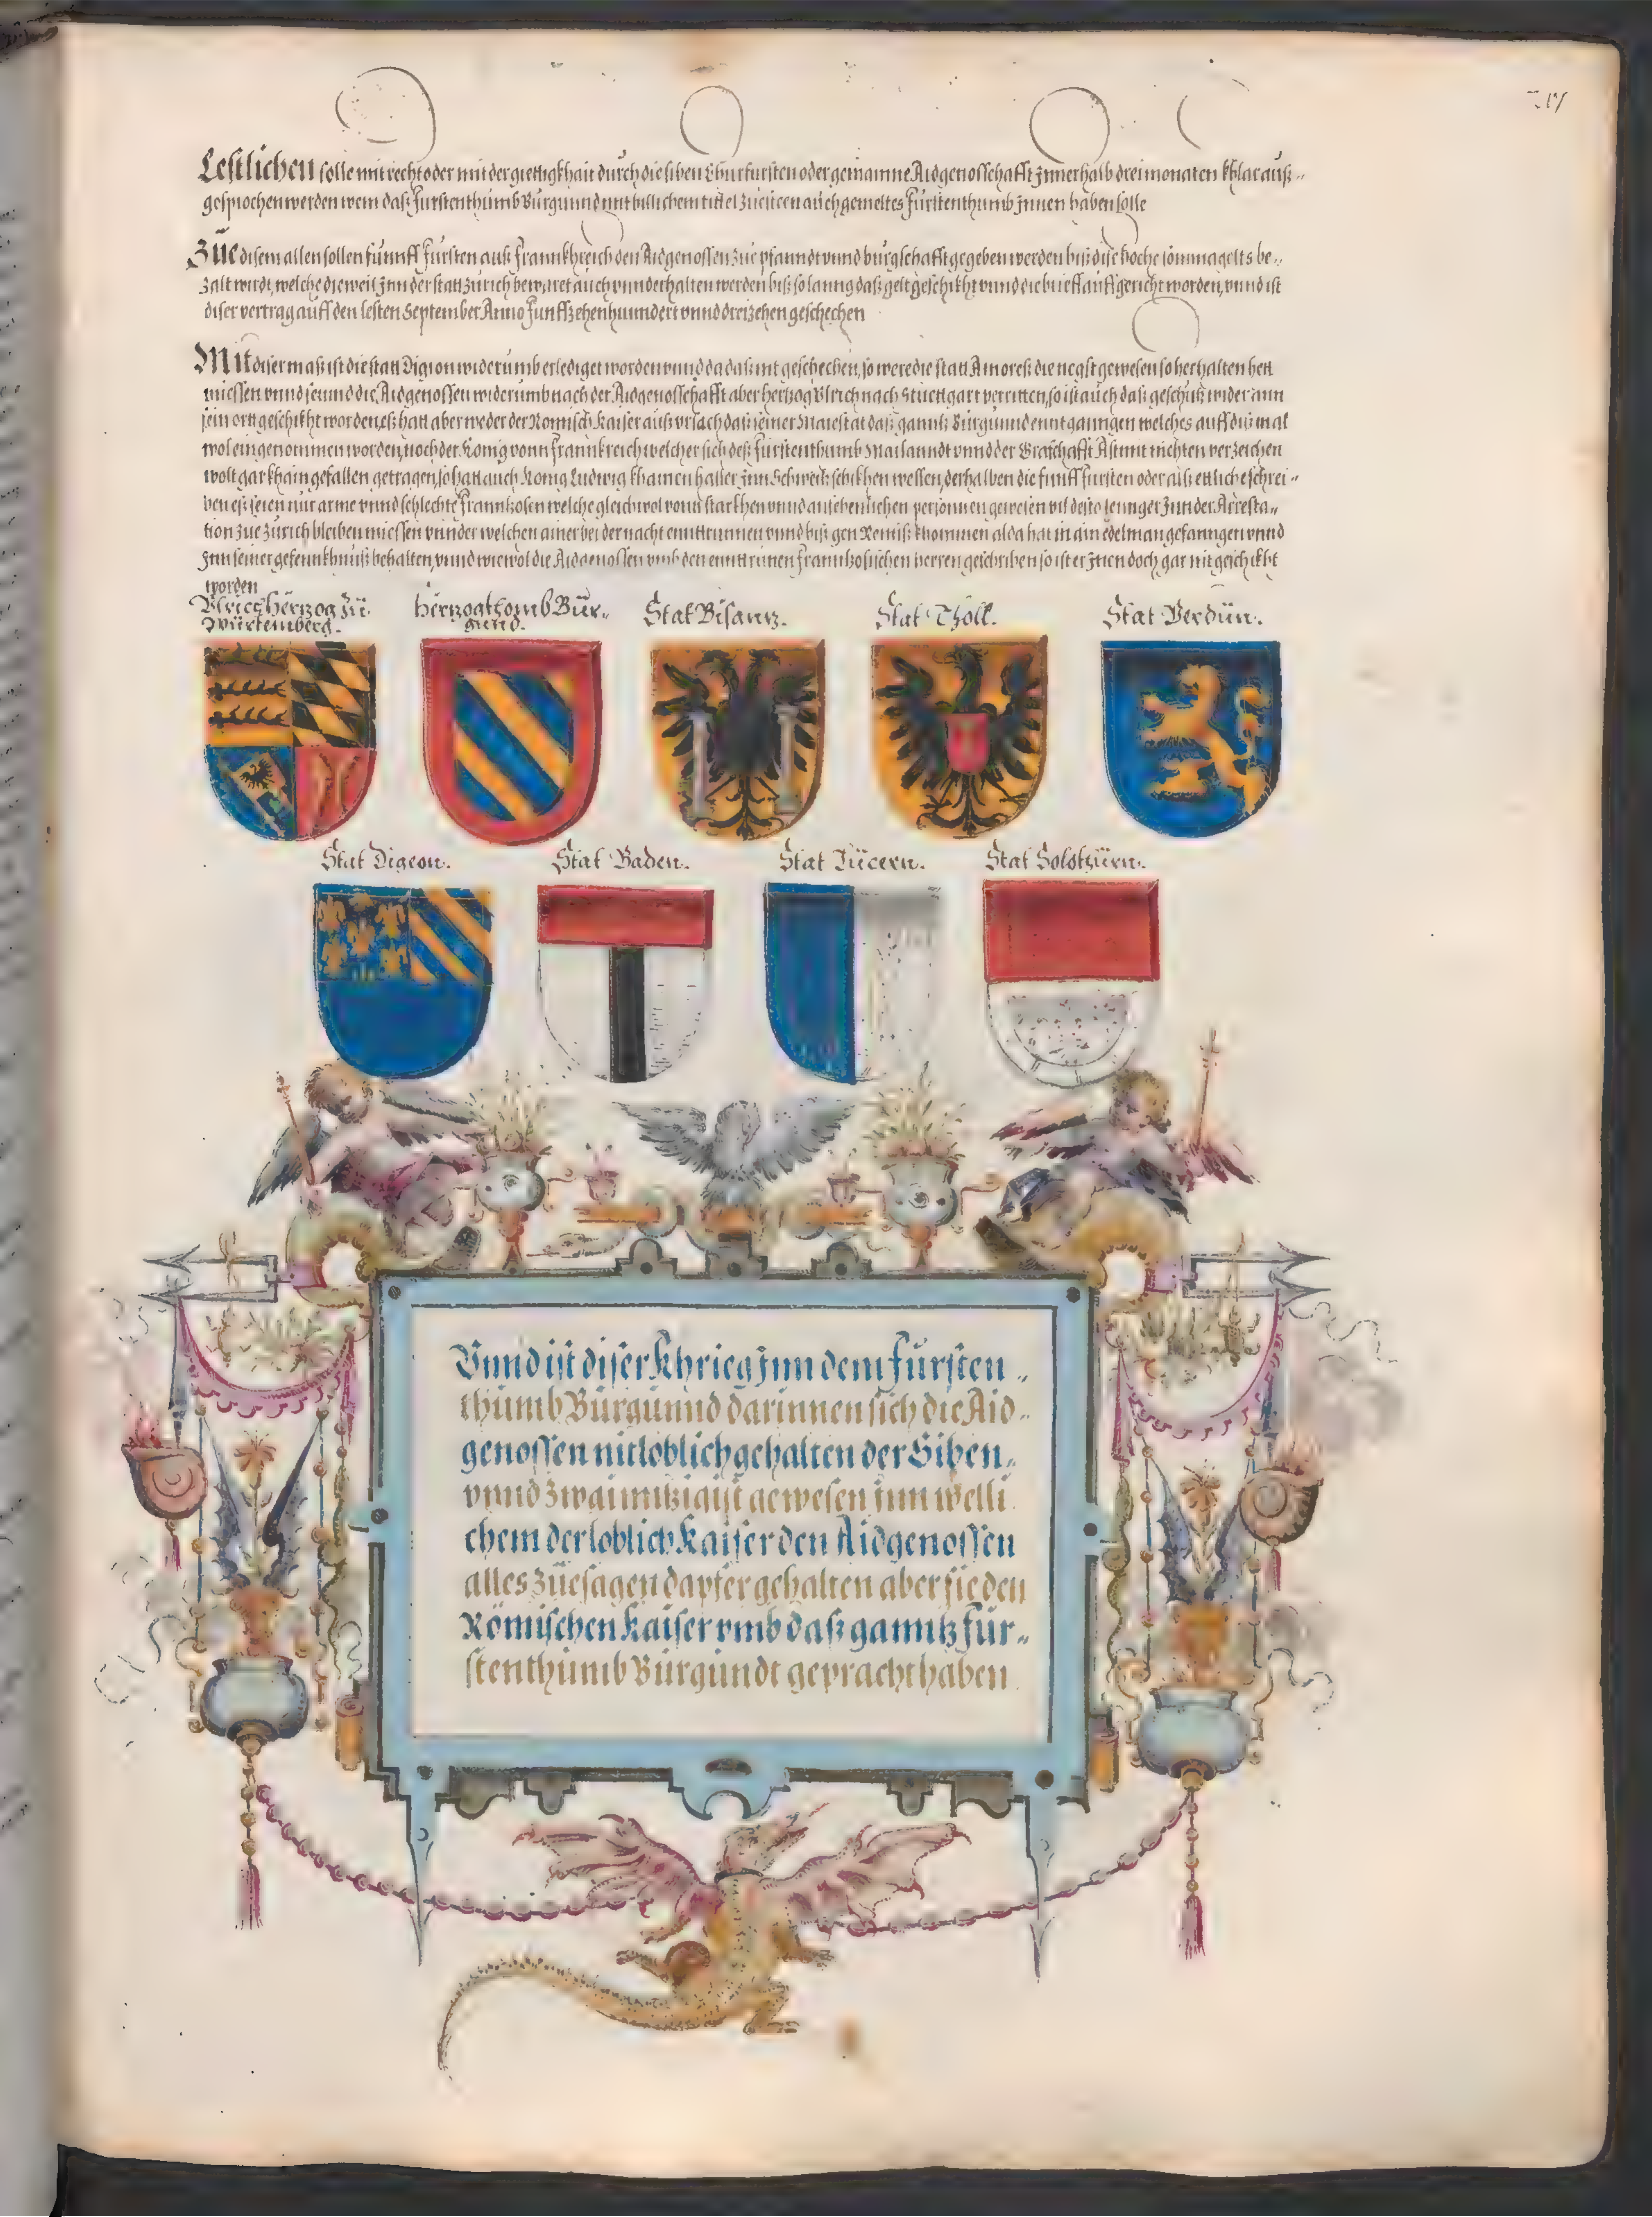 Lestlichen solle mit recht oder mit der giettigkhait durch die siben Churfursten oder gemainne Aidgenosschafft Innerhalb drei monaten khlar auß„
gesprochen werden wem daß Furstenthumb Burgund mit billichem tittel zuesteen auch gemeltes Furstenthumb Innen haben solle
Zue disem allen sollen funnff Fursten auß Frannkhreich den Aidgenossen zue pfanndt vnnd burgschafft gegeben werden biß dise hoche somma gelts be„
zalt wirdt, welche dieweil Inn der statt Zurich bewaret auch vnnderhalten werden biß so lanng daß gelt geschikht vnnd die brieff auffgericht worden, vnnd ist
diser vertrag auff den lesten September Anno Funffzehenhunndert vnnd dreizehen geschechen
Mit diser maß ist die statt Digion widerumb erlediget worden vnnd da daß nit geschechen, so were die statt Amores die negst gewesen so herhalten hett
miessen vnnd seinnd die Aidgenossen widerumb nach der Aidgenosschafft aber hertzog Vlrich nach Stuettgart verritten, so ist auch daß geschutz wider ann
sein ort geschikht worden, eß hatt aber weder der Romisch Kaiser auß vrsach daß seiner Maiestat daß ganntz Burgunnd enntganngen welches auff diß mal
wol eingenommen worden, noch der Konig vonn Frannkreich welcher sich deß Furstenthumb Mailanndt vnnd der Graffschafft Ast mit nichten verzeichen
wolt gar khain gefallen getragen, so hatt auch Konig Ludwig khainen haller Inn Schweitz schikhen wellen, derhalben die funff Fursten oder alß ettliche schrei„
ben eß seien nur arme vnnd schlechte Frannkosen welche gleichwol vonn starkhen vnnd ansehenlichen personnen gewesen vil desto lennger Inn der Arresta„
tion zue Zurich bleiben miessen vnnder welchen ainer bei der nacht enntrunnen vnnd biß gen Remiß khommen alda hat in ain edelman gefanngen vnnd
Inn seiner gefennkhnuß behalten, vnnd wiewol die Aidgenossen vmb den enntrunen frannkosischen herren geschriben so ist er Inen doch gar nit geschikht
worden
Vlrich Herzog zu
Würtemberg.
Herzogthomb Bur„
gund.
Stat Bisanz.
Stat Tholl.
Stat Verdün.
Stat Digeon.
Stat Baden.
Stat Lücern.
Stat Solothürn.
Vnnd ist diser Khrieg Inn dem Fürsten„
thumb Burgunnd darinnen sich die Aid„
genossen nit loblich gehalten der Siben„
vnnd zwaintzigist gewesen Inn welli
chem der loblich Kaiser den Aidgenossen
alles züesagen dapfer gehalten aber sie den
Römischen Kaiser vmb daß ganntz Für„
stenthumb Burgundt gepracht haben